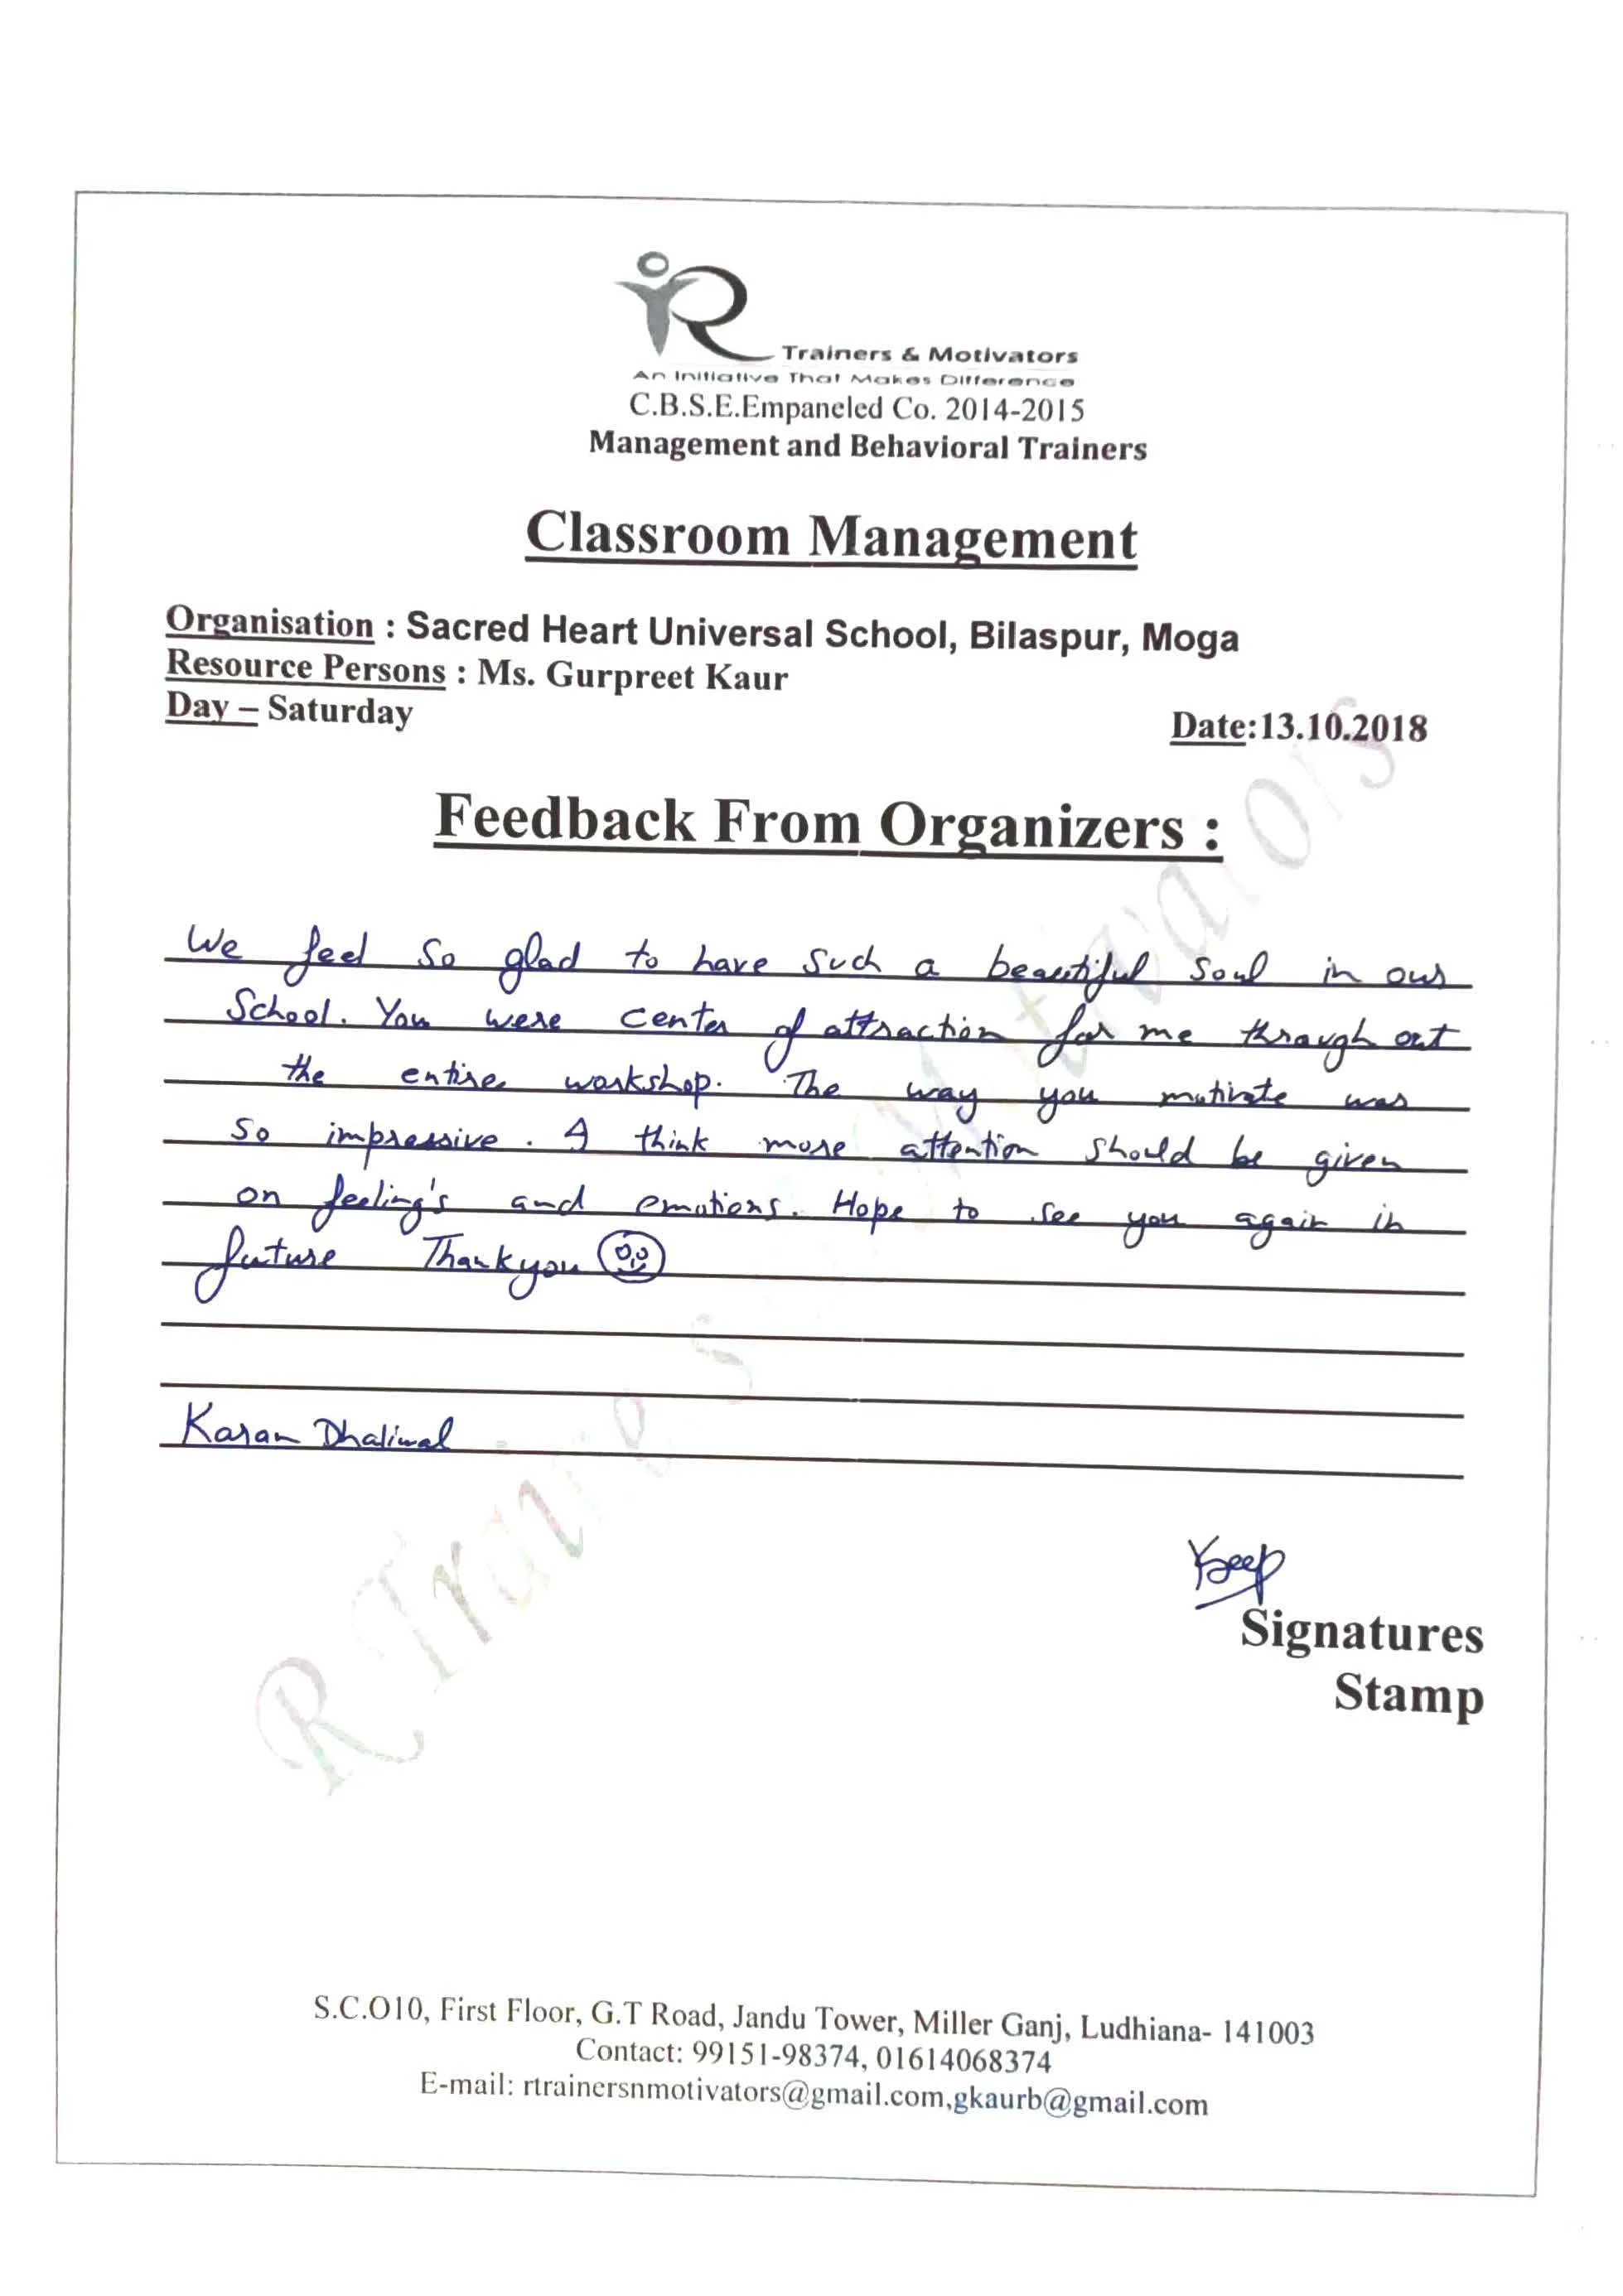 R Trainers & Motivators
An Initiative That Makes Difference
C.B.S.E.Empaneled Co. 2014-2015
Management and Behavioral Trainers
Classroom Management
Organisation : Sacred Heart Universal School, Bilaspur, Moga
Resource Persons : Ms. Gurpreet Kaur
Day – Saturday
Date:13.10.2018
Feedback From Organizers :
We feel so glad to have such a beautiful soul in our
School. You were center of attraction for me through out
the entire workshop. The way you motivate was
so impressive. I think more attention should be given
on feeling's and emotions. Hope to see you again in
future Thankyou
Karan Dhaliwal
Signatures
Stamp
S.C.O10, First Floor, G.T Road, Jandu Tower, Miller Ganj, Ludhiana- 141003
Contact: 99151-98374, 01614068374
E-mail: rtrainersnmotivators@gmail.com,gkaurb@gmail.com